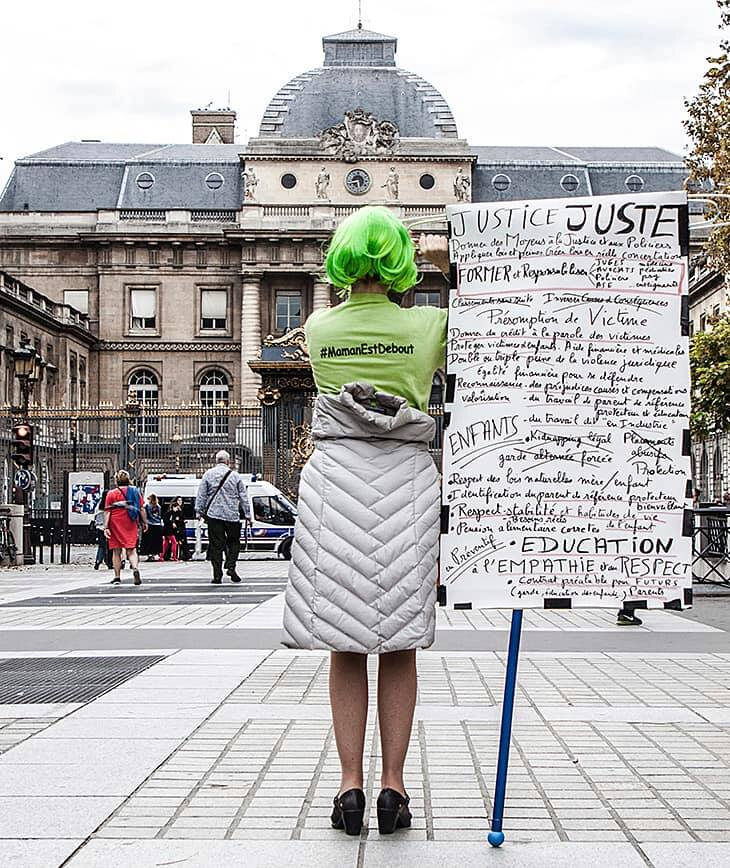 #MamanEstDebout
JUSTICE JUSTE
Donner des Moyens à la Justice et aux Policiers
Appliquer lois et peines Créer lors réelle concertation
FORMER et Responsabiliser JUGES médecins
AVOCATS pédiatres
Policiers psy
ASE enseignants
Classements sans suite Inverser Causes et Conséquences
Présomption de Victime
Donner du crédit à la parole des victimes
Protéger victimes d'enfants Aide financière et médicales
Double ou triple peine de la violence juridique
égalité financière pour se défendre
Reconnaissance des préjudices causés et compensations
valorisation du travail de parent de référence
protecteur et éducateur
ENFANTS du travail de en Industrie
Kidnapping légal Placements
garde alternée forcée abusifs
Protection
Respect des lois naturelles mère/enfant
Identification du parent de référence protecteur
bienveillant
Respect-stabilité et habitudes de vie
Besoins réels de l'enfant
Pension alimentaire correcte
en Préventif EDUCATION
à l'EMPATHIE et au RESPECT
Contrat préalable pour FUTURS
(garde, éducation des enfants) Parents